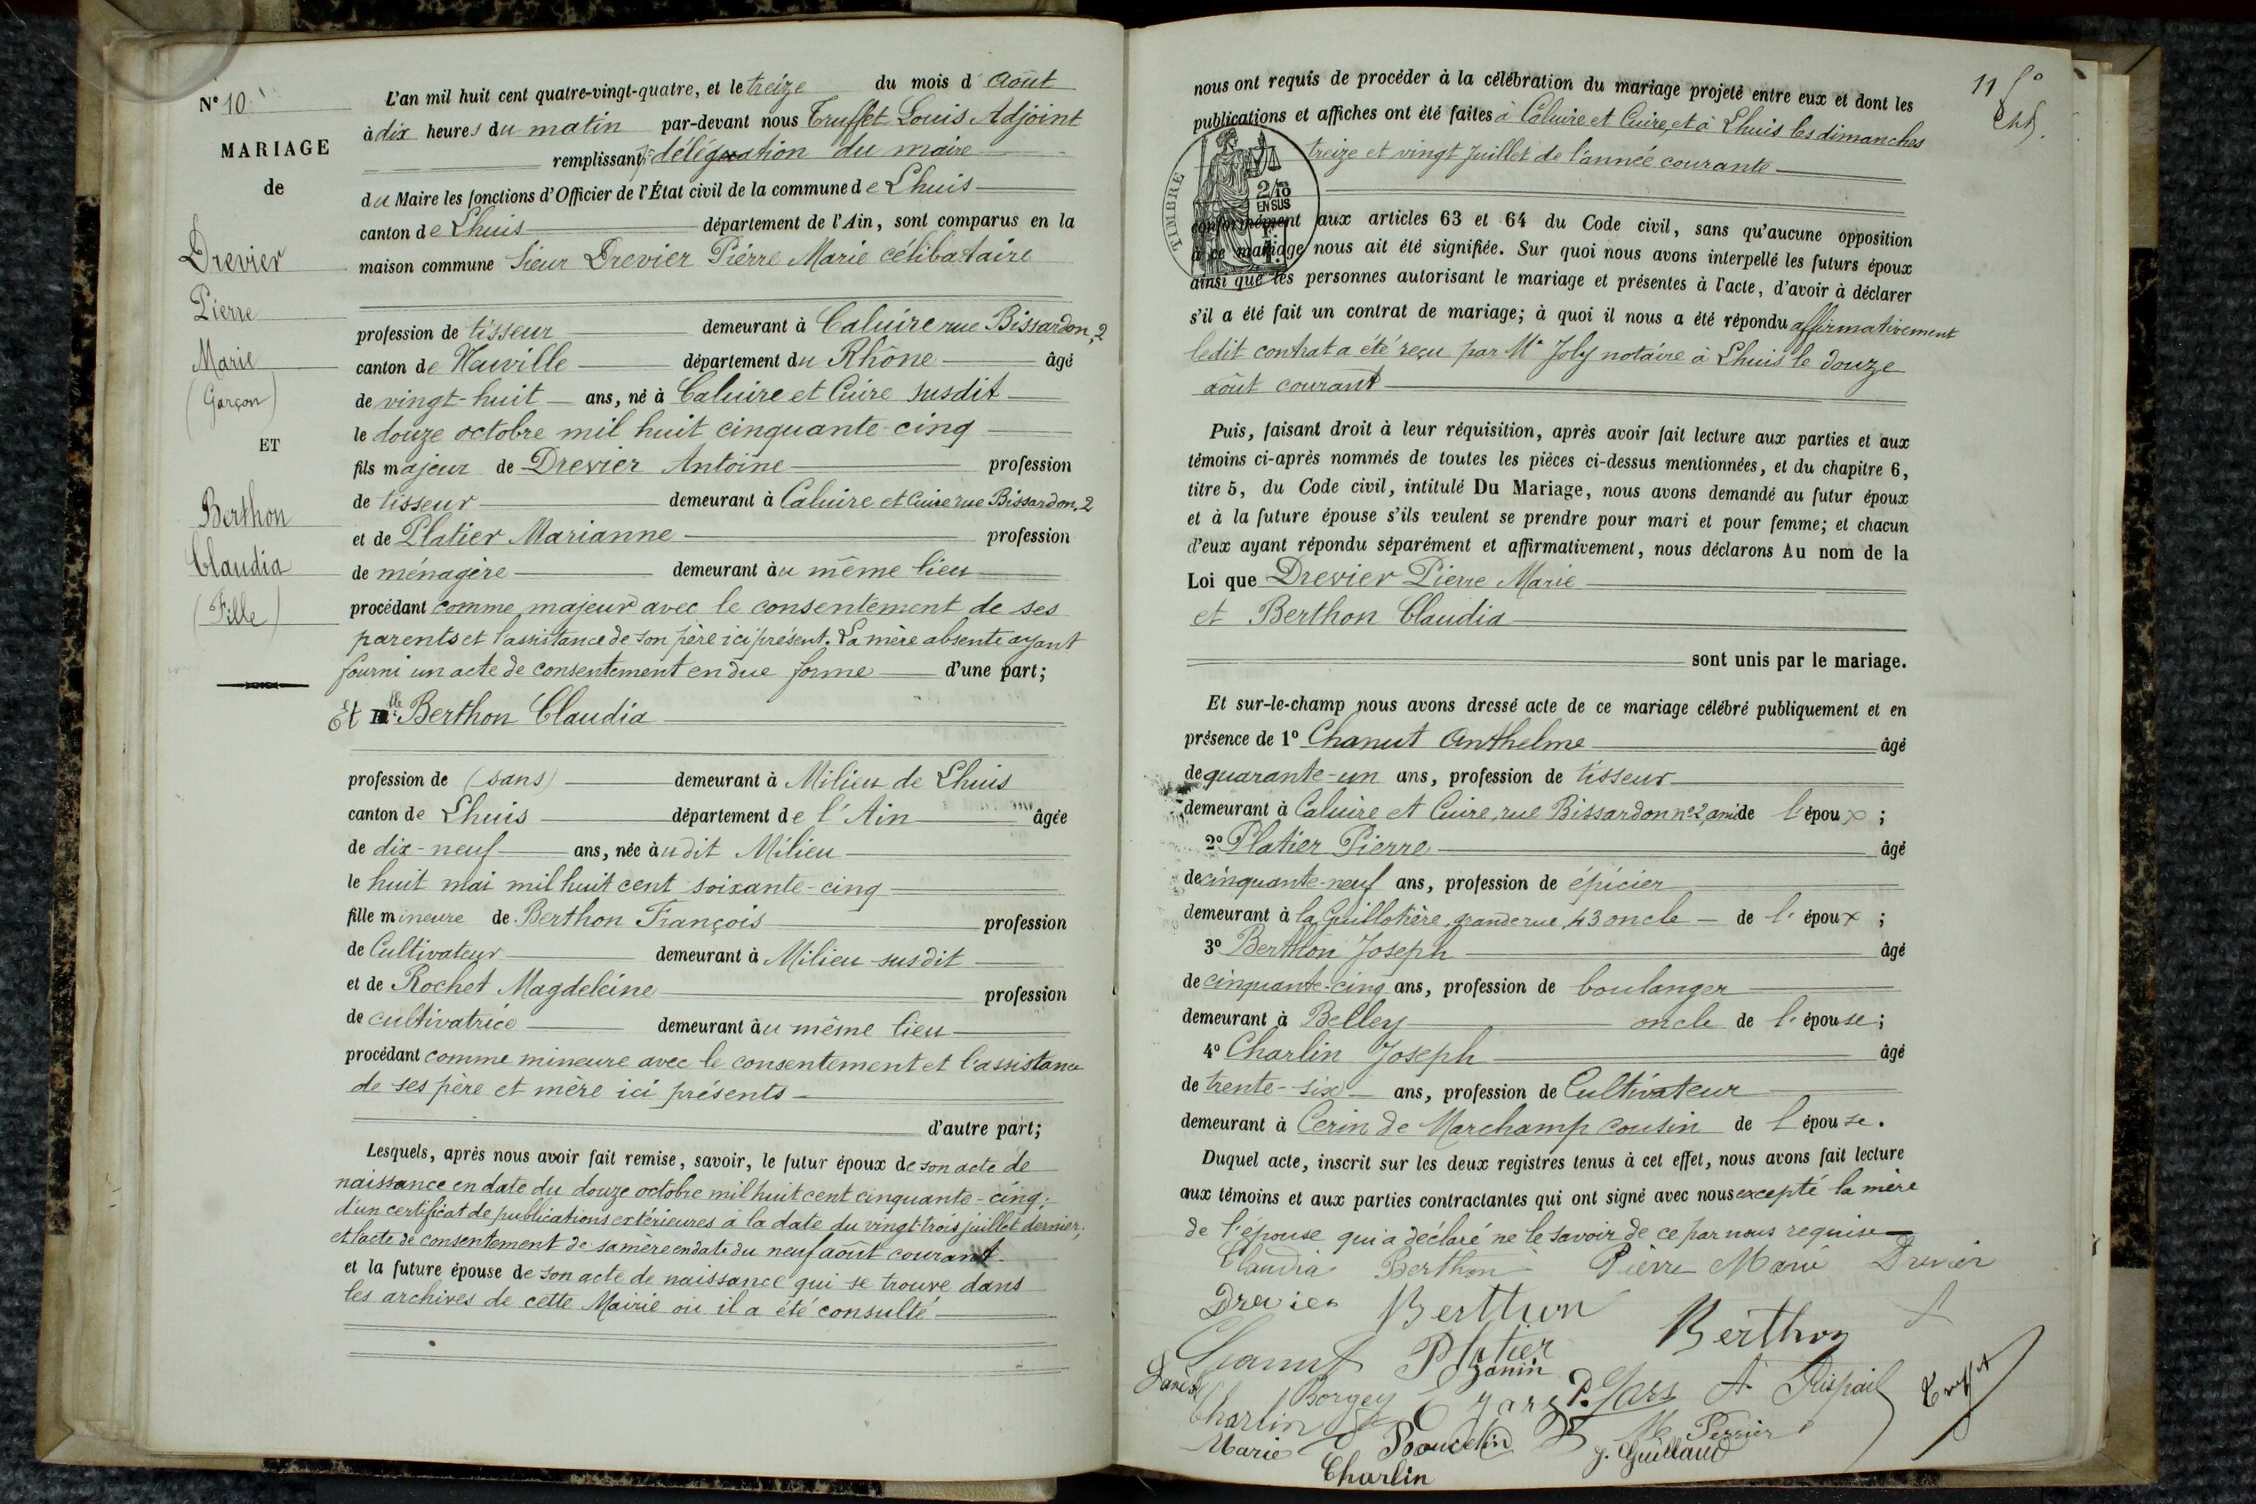 N° 10
MARIAGE
de
Drevier
Pierre
Marie
(Garçon)
ET
Berthon
Claudia
(Fille)
L'an mil huit cent quatre-vingt-quatre, et le treize du mois d'août
à dix heures du matin par-devant nous Truffet Louis Adjoint
remplissant délégation du maire
du Maire les fonctions d'Officier de l'État civil de la commune de Lhuis
canton de Lhuis département de l'Ain, sont comparus en la
maison commune Sieur Drevier Pierre Marie célibataire
profession de tisseur demeurant à Caluire rue Bissardon, 2
canton de Neuville département du Rhône âgé
de vingt-huit ans, né à Caluire et Cuire susdit
le douze octobre mil huit cinquante-cinq
fils majeur de Drevier Antoine profession
de tisseur demeurant à Caluire et Cuire rue Bissardon, 2
et de Platier Marianne profession
de ménagère demeurant au même lieu
procédant comme majeur avec le consentement de ses
parents et l'assistance de son père ici présent. La mère absente ayant
fourni un acte de consentement en due forme d'une part;
Et Berthon Claudia
profession de (sans) demeurant à Milieu de Lhuis
canton de Lhuis département de l'Ain âgée
de dix-neuf ans, née audit Milieu
le huit mai mil huit cent soixante-cinq
fille mineure de Berthon François profession
de Cultivateur demeurant à Milieu susdit
et de Rochet Magdeleine profession
de cultivatrice demeurant au même lieu
procédant comme mineure avec le consentement et l'assistance
de ses père et mère ici présents
d'autre part;
Lesquels, après nous avoir fait remise, savoir, le futur époux de son acte de
naissance en date du douze octobre mil huit cent cinquante-cinq;
d'un certificat de publications extérieures à la date du vingt-trois juillet dernier;
et l'acte de consentement de sa mère en date du neuf août courant.
et la future épouse de son acte de naissance qui se trouve dans
les archives de cette Mairie où il a été consulté
11
nous ont requis de procéder à la célébration du mariage projeté entre eux et dont les
publications et affiches ont été faites à Caluire et Cuire, et à Lhuis les dimanches
treize et vingt juillet de l'année courante
TIMBRE
2/10
EN SUS
conformément aux articles 63 et 64 du Code civil, sans qu'aucune opposition
à ce mariage nous ait été signifiée. Sur quoi nous avons interpellé les futurs époux
ainsi que les personnes autorisant le mariage et présentes à l'acte, d'avoir à déclarer
s'il a été fait un contrat de mariage; à quoi il nous a été répondu affirmativement
ledit contrat a été reçu par Me Joly notaire à Lhuis le douze
août courant
Puis, faisant droit à leur réquisition, après avoir fait lecture aux parties et aux
témoins ci-après nommés de toutes les pièces ci-dessus mentionnées, et du chapitre 6,
titre 5, du Code civil, intitulé Du Mariage, nous avons demandé au futur époux
et à la future épouse s'ils veulent se prendre pour mari et pour femme; et chacun
d'eux ayant répondu séparément et affirmativement, nous déclarons Au nom de la
Loi que Drevier Pierre Marie
et Berthon Claudia
sont unis par le mariage.
Et sur-le-champ nous avons dressé acte de ce mariage célébré publiquement et en
présence de 1° Chanut Anthelme âgé
de quarante-un ans, profession de tisseur
demeurant à Caluire et Cuire, rue Bissardon n° 2, ami de l'époux;
2° Platier Pierre âgé
de cinquante-neuf ans, profession de épicier
demeurant à la Guillotière, grande rue, 43 oncle de l'époux;
3° Berthon Joseph âgé
de cinquante-cinq ans, profession de boulanger
demeurant à Belley oncle de l'épouse;
4° Charlin Joseph âgé
de trente-six ans, profession de Cultivateur
demeurant à Cerin de Marchamp cousin de l'épouse.
Duquel acte, inscrit sur les deux registres tenus à cet effet, nous avons fait lecture
aux témoins et aux parties contractantes qui ont signé avec nous excepté la mère
de l'épouse qui a déclaré ne le savoir de ce par nous requise
Claudia Berthon Pierre Marie Drevier
Drevier Berthon Berthon
Chanut Platier
Janin
Charlin Borgey P. Gars
Marie Poncelin M. Perrier
Charlin J. Guillaud
Truffet